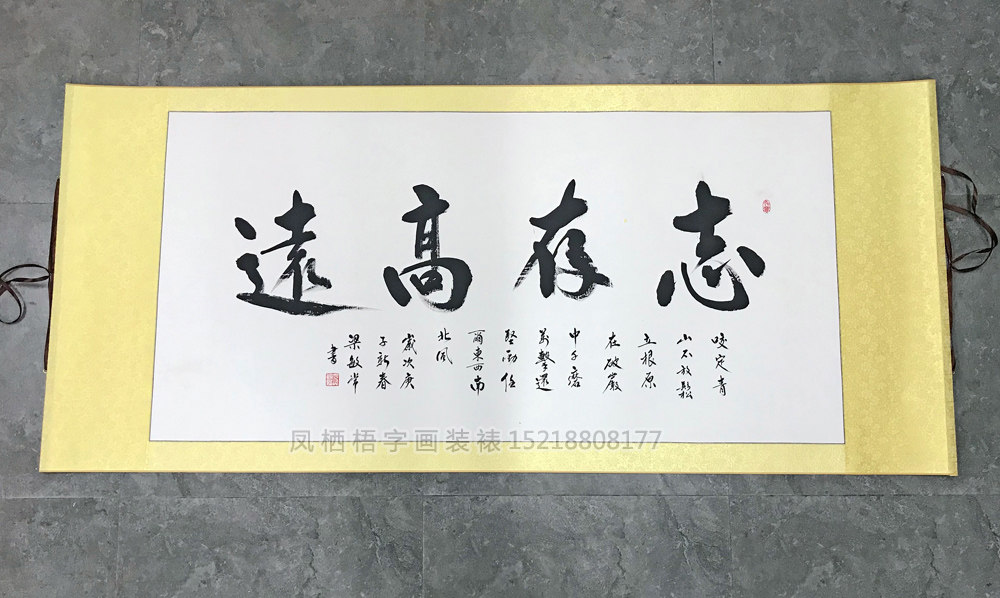 志存高遠
咬定青
山不放鬆
立根原
在破巖
中千磨
萬擊還
堅勁任
爾東西南
北風
歲次庚
子新春
梁敏
書
凤栖梧字画装裱15218808177